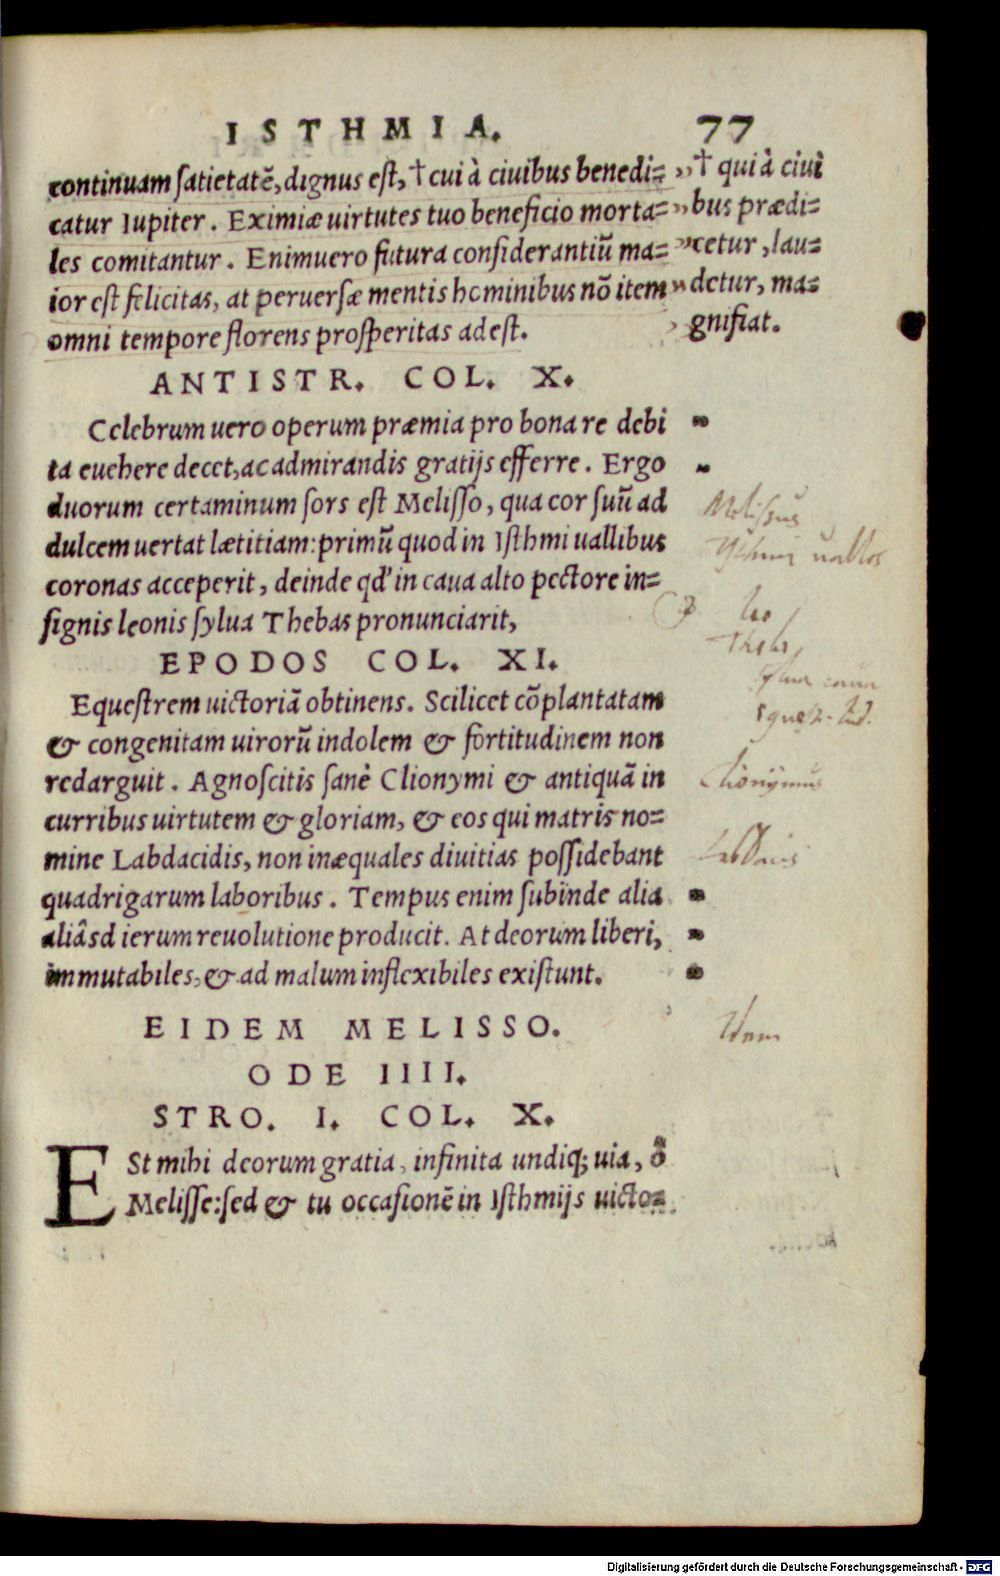 ISTHMIA. 77
continuam ſatietatẽ, dignus eſt, † cui à ciuibus benedi=
catur Iupiter. Eximiæ uirtutes tuo beneficio morta=
les comitantur. Enimuero futura conſiderantiũ ma=
ior eſt felicitas, at peruerſæ mentis hominibus nõ item
omni tempore florens proſperitas adeſt.
† qui à ciui
bus prædi=
cetur, lau=
detur, ma=
gnifiat.
ANTISTR. COL. X.
Celebrum uero operum præmia pro bona re debi
ta euehere decet, ac admirandis gratijs efferre. Ergo
duorum certaminum ſors eſt Meliſſo, qua cor ſuũ ad
dulcem uertat lætitiam: primũ quod in Iſthmi uallibus
coronas acceperit, deinde qd' in caua alto pectore in=
ſignis leonis ſylua Thebas pronunciarit,
Meliſsus
uallos
leo
EPODOS COL. XI.
Equeſtrem uictoriã obtinens. Scilicet cõplantatam
& congenitam uirorũ indolem & fortitudinem non
redarguit. Agnoſcitis ſanè Clionymi & antiquã in
curribus uirtutem & gloriam, & eos qui matris no=
mine Labdacidis, non inæquales diuitias poſſidebant
quadrigarum laboribus. Tempus enim ſubinde alia
aliâsd ierum reuolutione producit. At deorum liberi,
immutabiles, & ad malum inflexibiles exiſtunt.
Clionymus
EIDEM MELISSO.
ODE IIII.
STRO. I. COL. X.
ESt mihi deorum gratia, infinita undiq; uia, ô
Meliſſe: ſed & tu occaſionẽ in Iſthmijs uicto=
Idem
Digitalisierung gefördert durch die Deutsche Forschungsgemeinschaft - DFG